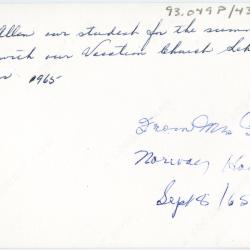 93.049P/43
Allen our student for the summ
with our Vacation Church Sch
1965
From Mrs
Norway
Sept 8/65